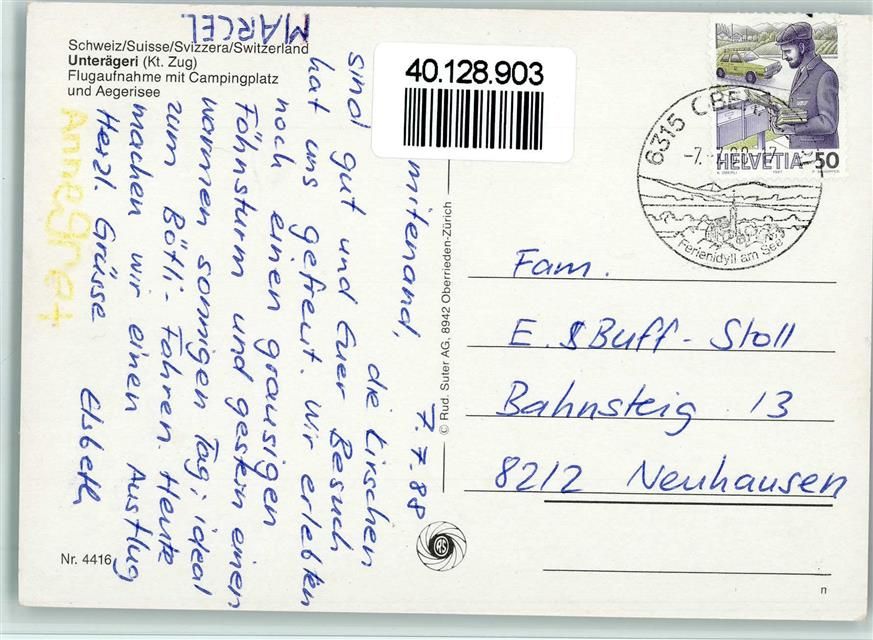 Schweiz/Suisse/Svizzera/Switzerland
Unterägeri (Kt. Zug)
Flugaufnahme mit Campingplatz
und Aegerisee
40.128.903
7.7.88
mitenand,
die Kirschen
sind gut und Euer Besuch
hat uns gefreut. Wir erlebten
noch einen grausigen
Föhnsturm und gestern einen
warmen sonnigen Tag; ideal
zum Bötli-Fahren. Heute
machen wir einen Ausflug
Herzl. Grüsse Elsbeth
MARCEL
Annegret
© Rud. Suter AG, 8942 Oberrieden-Zürich
Nr. 4416
HELVETIA 50
6315 OBE
-7. 7.88-17
Ferienidyll am See
Fam.
E. & Buff-Stoll
Bahnsteig 13
8212 Neuhausen
n